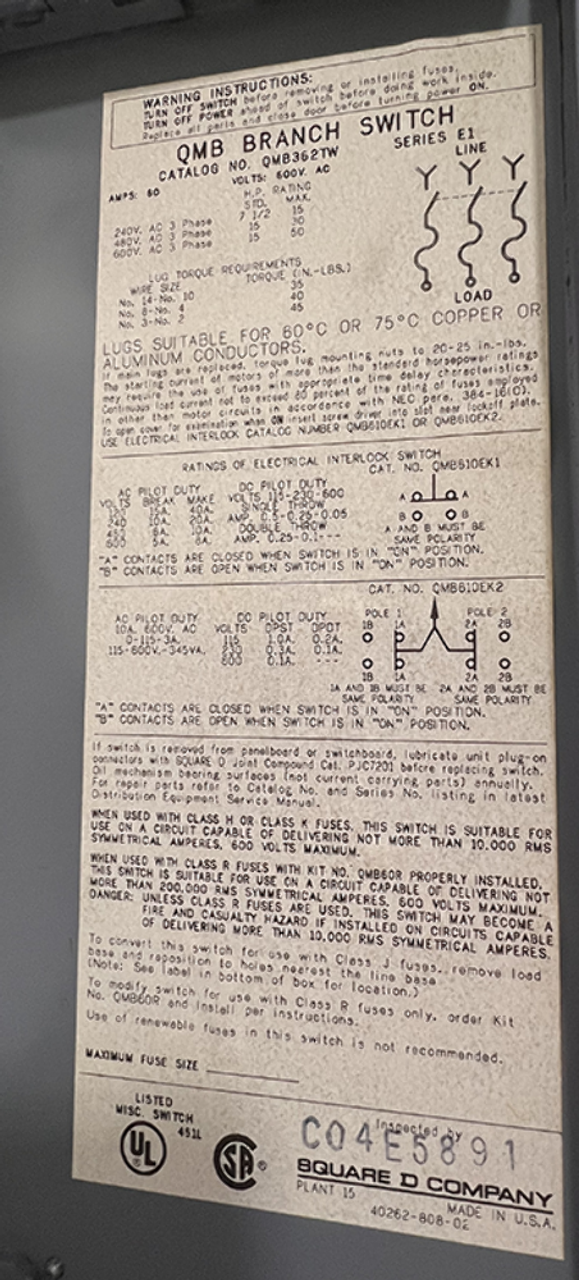 WARNING INSTRUCTIONS:
TURN OFF SWITCH before removing or installing fuses.
TURN OFF POWER ahead of switch before doing work inside.
Replace all parts and close door before turning power ON.
QMB BRANCH SWITCH
CATALOG NO. QMB362TW SERIES E1
AMPS: 60 VOLTS: 600V. AC
LINE
H.P. RATING
STD. MAX.
240V. AC 3 Phase 7 1/2 15
480V. AC 3 Phase 15 30
600V. AC 3 Phase 15 50
LUG TORQUE REQUIREMENTS
WIRE SIZE TORQUE (IN.-LBS.)
No. 14-No. 10 35
No. 8-No. 4 40
No. 3-No. 2 45
LOAD
LUGS SUITABLE FOR 60°C OR 75°C COPPER OR
ALUMINUM CONDUCTORS.
If main lugs are replaced, torque lug mounting nuts to 20-25 in.-lbs.
The starting current of motors of more than the standard horsepower ratings
may require the use of fuses with appropriate time delay characteristics.
Continuous load current not to exceed 80 percent of the rating of fuses employed
in other than motor circuits in accordance with NEC para. 384-16(c).
To open cover for examination when ON insert screw driver into slot near lockoff plate.
USE ELECTRICAL INTERLOCK CATALOG NUMBER QMB610EK1 OR QMB610EK2.
RATINGS OF ELECTRICAL INTERLOCK SWITCH
CAT. NO. QMB610EK1
AC PILOT DUTY DC PILOT DUTY
VOLTS BREAK MAKE VOLTS 115-230-600
120 15A. 40A. SINGLE THROW
240 10A. 20A. AMP. 0.5-0.25-0.05
10A. DOUBLE THROW
600 5A. AMP. 0.25-0.1---
A A
B B
A AND B MUST BE
SAME POLARITY
"A" CONTACTS ARE CLOSED WHEN SWITCH IS IN "ON" POSITION.
"B" CONTACTS ARE OPEN WHEN SWITCH IS IN "ON" POSITION.
CAT. NO. QMB610EK2
AC PILOT DUTY DC PILOT DUTY
10A. 600V. AC VOLTS DPST DPDT
0-115-3A. 115 1.0A. 0.2A.
115-600V.-345VA. 230 0.3A. 0.1A.
600 0.1A. ---
POLE 1 POLE 2
1B 1A 2A 2B
1B 1A 2A 2B
1A AND 1B MUST BE 2A AND 2B MUST BE
SAME POLARITY SAME POLARITY
"A" CONTACTS ARE CLOSED WHEN SWITCH IS IN "ON" POSITION.
"B" CONTACTS ARE OPEN WHEN SWITCH IS IN "ON" POSITION.
If switch is removed from panelboard or switchboard, lubricate unit plug-on
connectors with SQUARE D Joint Compound Cat. PJC7201 before replacing switch.
Oil mechanism bearing surfaces (not current carrying parts) annually.
For repair parts refer to Catalog No. and Series No. listing in latest
Distribution Equipment Service Manual.
WHEN USED WITH CLASS H OR CLASS K FUSES, THIS SWITCH IS SUITABLE FOR
USE ON A CIRCUIT CAPABLE OF DELIVERING NOT MORE THAN 10,000 RMS
SYMMETRICAL AMPERES, 600 VOLTS MAXIMUM.
WHEN USED WITH CLASS R FUSES WITH KIT NO. QMB60R PROPERLY INSTALLED,
THIS SWITCH IS SUITABLE FOR USE ON A CIRCUIT CAPABLE OF DELIVERING NOT
MORE THAN 200,000 RMS SYMMETRICAL AMPERES, 600 VOLTS MAXIMUM.
DANGER: UNLESS CLASS R FUSES ARE USED, THIS SWITCH MAY BECOME A
FIRE AND CASUALTY HAZARD IF INSTALLED ON CIRCUITS CAPABLE
OF DELIVERING MORE THAN 10,000 RMS SYMMETRICAL AMPERES.
To convert this switch for use with Class J fuses, remove load
base and reposition to holes nearest the line base
(Note: See label in bottom of box for location.)
To modify switch for use with Class R fuses only, order Kit
No. QMB60R and install per instructions.
Use of renewable fuses in this switch is not recommended.
MAXIMUM FUSE SIZE
LISTED
MISC. SWITCH
451L
UL
SA ®
Inspected by
C04E5891
SQUARE D COMPANY
PLANT 15 MADE IN U.S.A.
40262-808-02